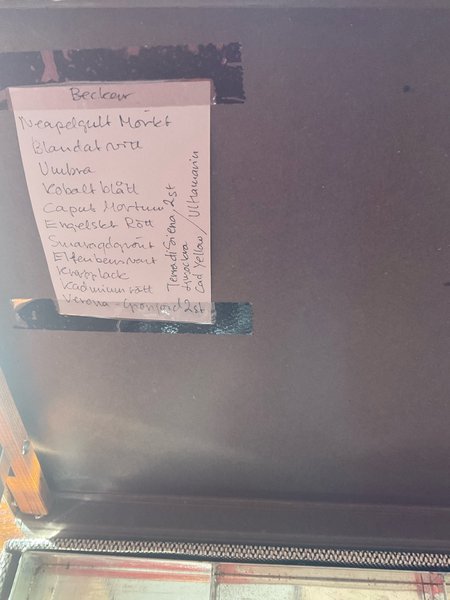 Becker
Neapelgult Mörkt
Blandat vitt
Umbra
Kobalt blått
Caput Mortum
Engelskt Rött
Smaragdgrönt
Elfenbensvart
Krapplack
Kadmium rött
Verona - Grönjord 2st
Terra di Siena, 2st
Ljusockra
Cad Yellow / Ultramarin